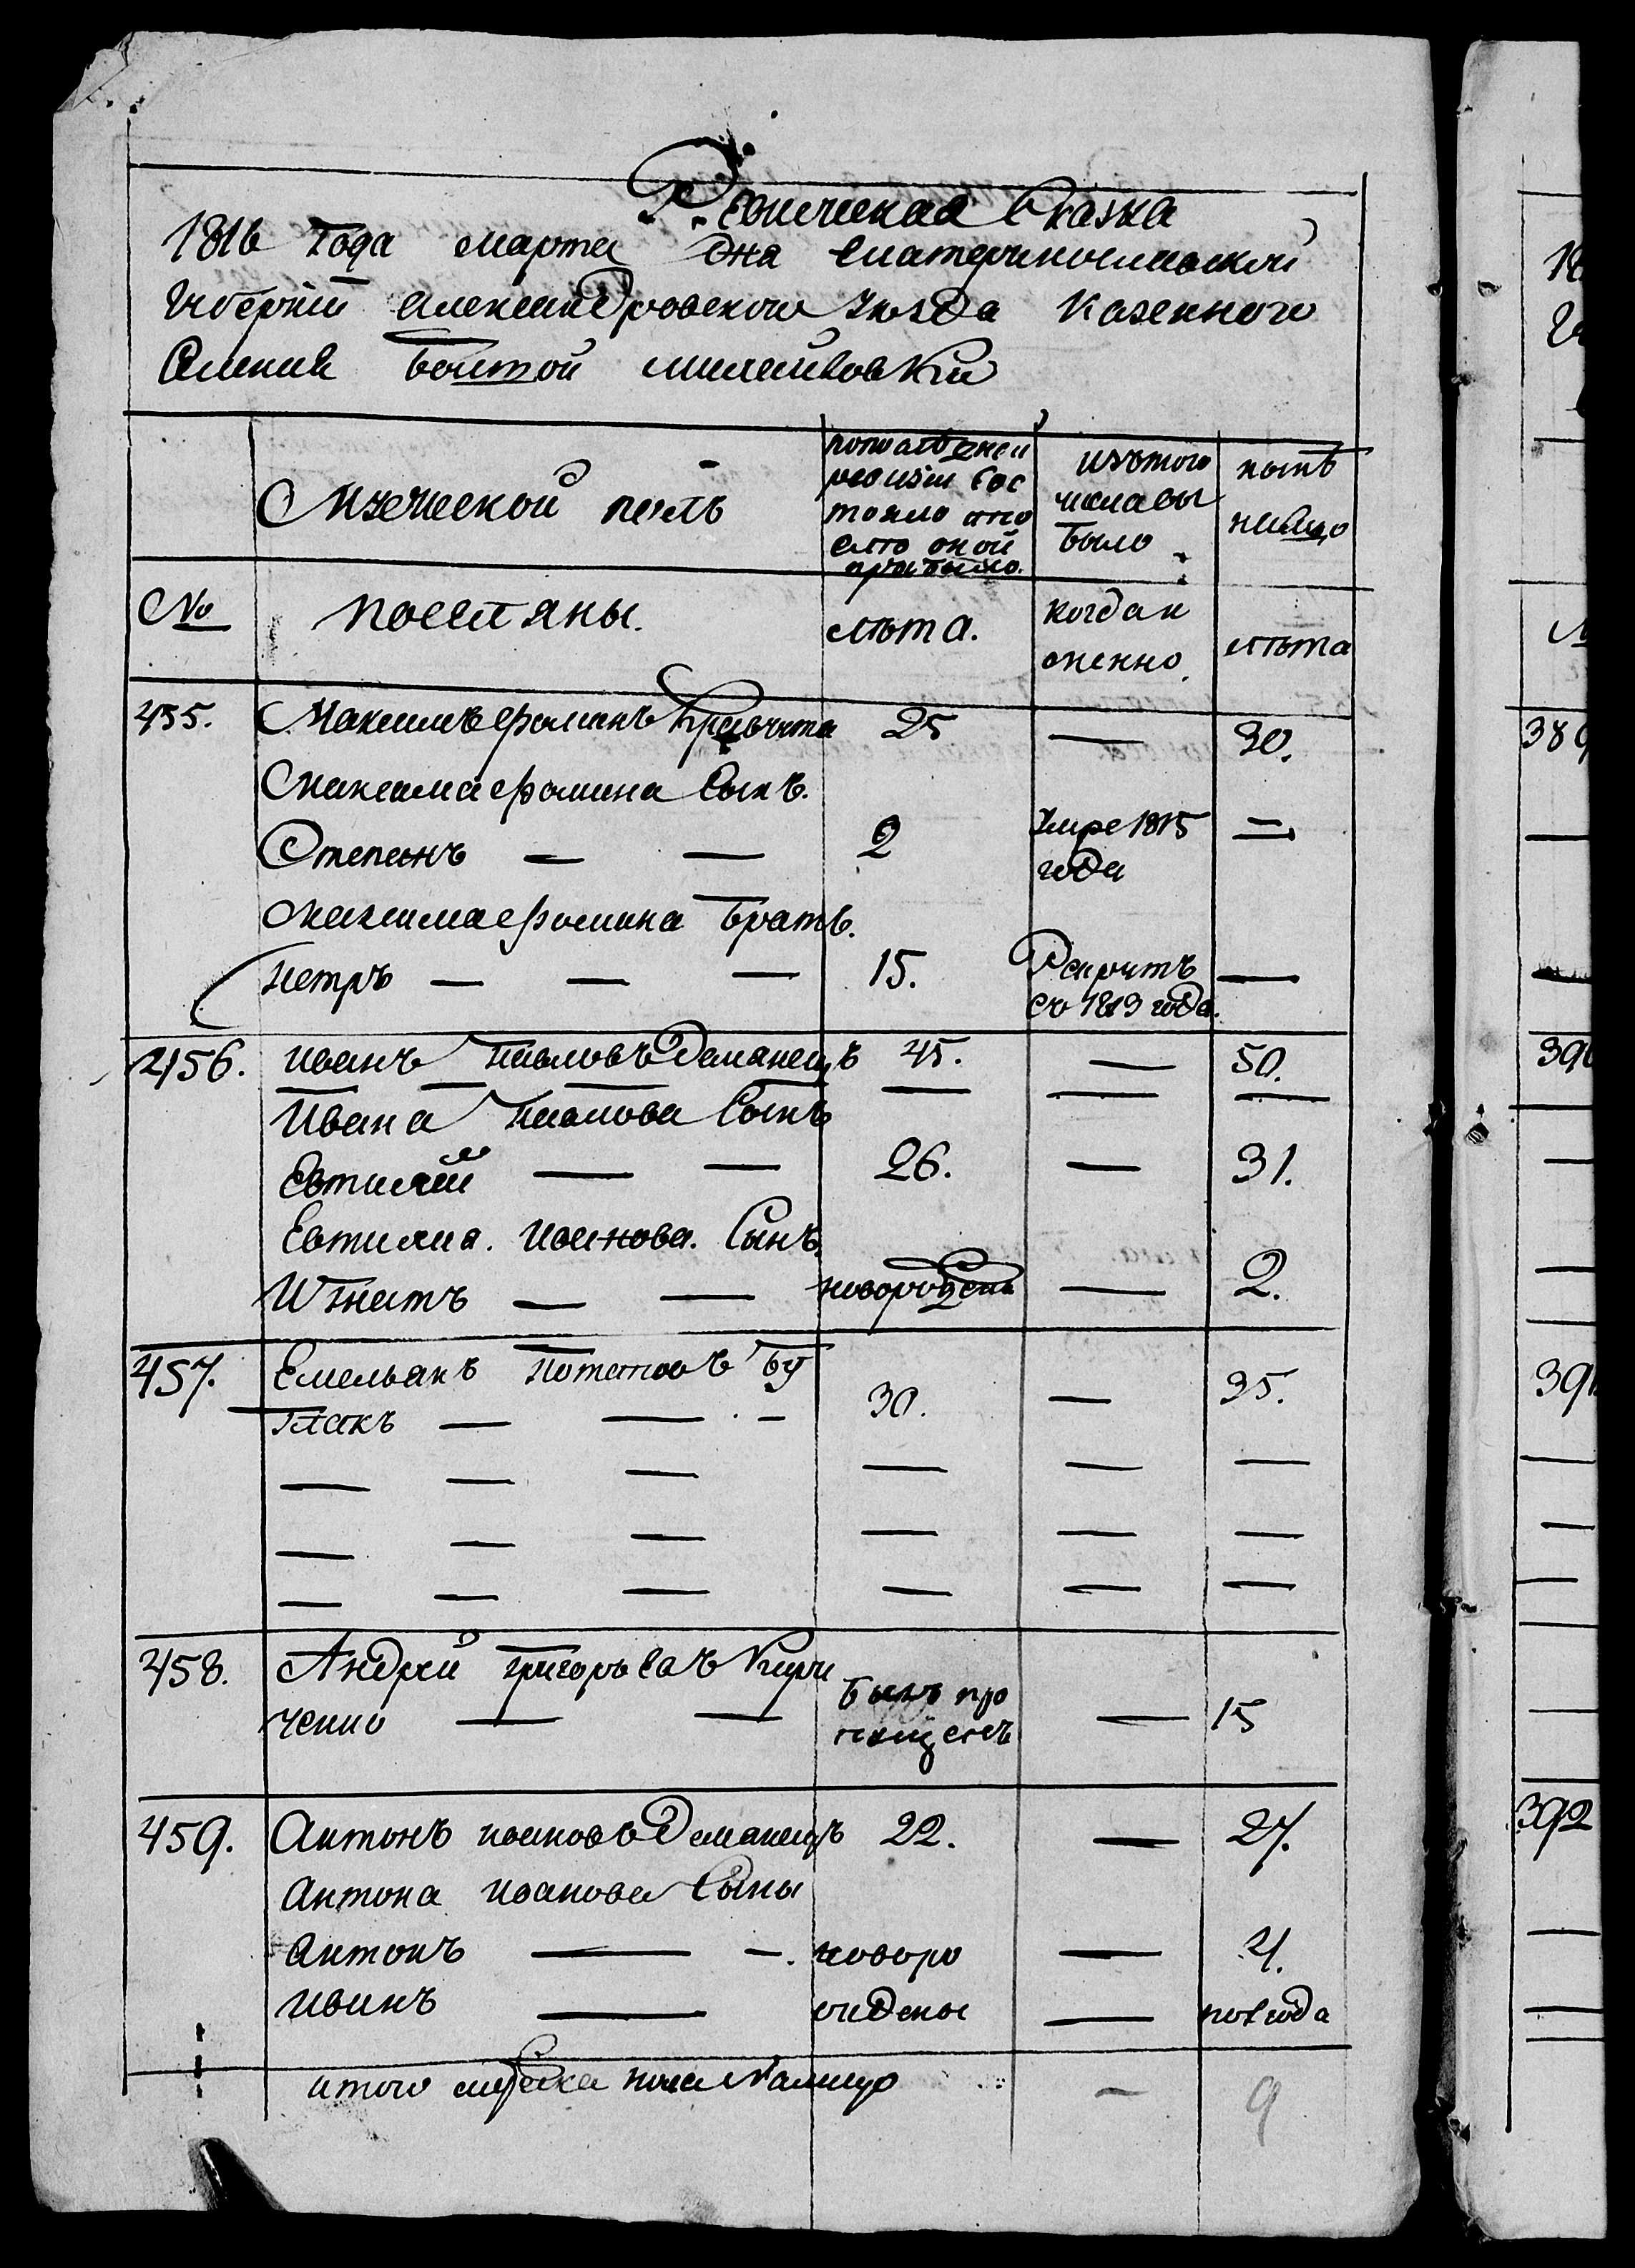 Ревижская Сказка
1816 года марта дня екатеринославской
губерніи александровской уезда казенного
Селения Болшой михайловки
Мужеской полъ
попоследней
ревизіи сос
тояло ипо
сле оной
прибыло.
изътого
числа вы
было
ныне
налицо
№
поселяны.
лета.
когда и
менно.
лета
455. Максимъ фоминъ 25 — 30.
Максима фомина Сынъ.
Степанъ — — 2 Умре 1815 —
года
Максима фомина братъ.
петръ — — — 15. Рекрутъ —
съ 1813 года.
456. иванъ павловъ Деманецъ 45. — 50.
Ивана павлова Сынъ — — —
Евтихій — — 26. — 31.
Евтихия. иванова. Сынъ.
Игнатъ — — новорожденъ — 2.
457. Емельянъ потаповъ бу
глакъ — — . — 30. — 35.
— — — — — —
— — — — — —
— — — — — —
458. Андрей григорьевъ Кири
ченко — — былъ про
пущенъ — 15
459. Антонъ ивановъ Деманецъ 22. — 27.
Антона иванова Сыны
антонъ — —. новоро — 4.
иванъ — ждены — полгода
итого мужеска пола налицо — 9
389
390
391
392